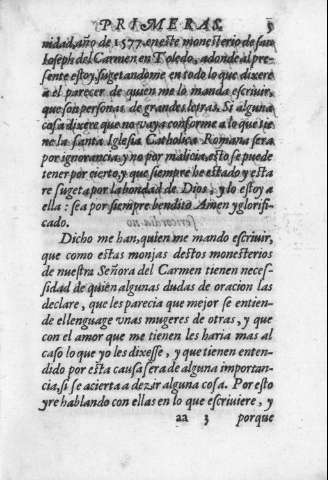 PRIMERAS. 3
nidad, año de 1577. en este monesterio de san
Ioseph del Carmen en Toledo, adonde al pre-
sente estoy, sugetandome en todo lo que dixere
a el parecer de quien me lo manda escriuir,
que son personas de grandes letras. Si alguna
cosa dixere que no vaya conforme a lo que tie
ne la santa Iglesia Catholica Romana sera
por ignorancia, y no por malicia, esto se puede
tener por cierto, y que siempre he estado y esta
re sugeta por la bondad de Dios, y lo estoy a
ella: sea por siempre bendito Amen y glorifi-
cado.
Dicho me han, quien me mando escriuir,
que como estas monjas destos monesterios
de nuestra Señora del Carmen tienen neces-
sidad de quien algunas dudas de oracion las
declare, que les parecia que mejor se entien-
de el lenguage vnas mugeres de otras, y que
con el amor que me tienen les haria mas al
caso lo que yo les dixesse, y que tienen enten-
dido por esta causa sera de alguna importan-
cia, si se acierta a dezir alguna cosa. Por esto
yre hablando con ellas en lo que escriuiere, y
aa 3 porque